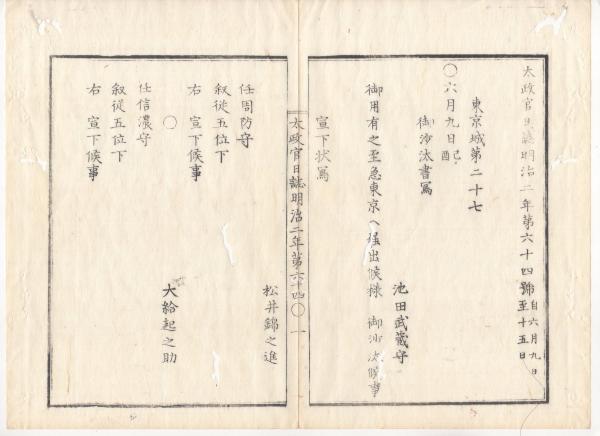 太政官日誌明治二年第六十四號 自六月九日至十五日
東京城第二十七
○六月九日 己酉
御沙汰書寫
池田武藏守
御用有之至急東京ヘ罷出候樣 御沙汰候事
宣下状寫
太政官日誌明治二年第六十四 ○ 一
松井錦之進
任周防守
叙從五位下
右 宣下候事
○
大給起之助
任信濃守
叙從五位下
右 宣下候事